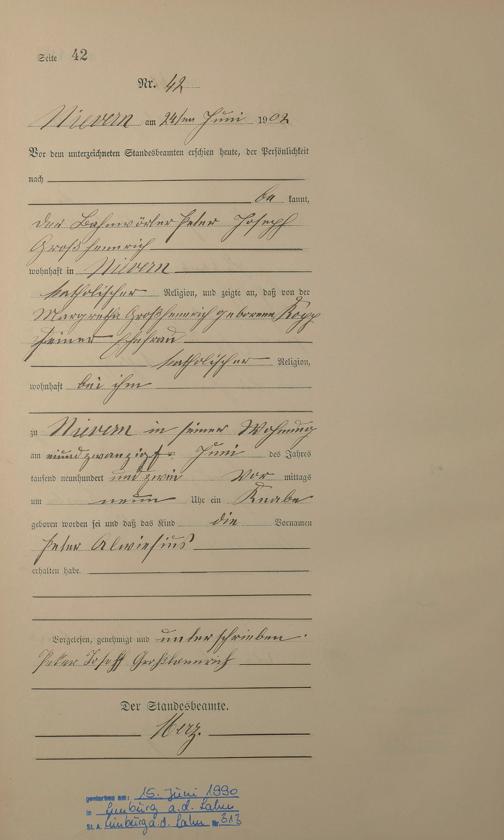 Seite 42
Nr. 42
Nievern am 24ten Juni 1902
Vor dem unterzeichneten Standesbeamten erschien heute, der Persönlichkeit
nach
bekannt,
der Bahnwärter Peter Joseph
Großhennrich
wohnhaft in Nievern
katholischer Religion, und zeigte an, daß von der
Margretha Großhennrich geborenen Kopp
seiner Ehefrau
katholischer Religion,
wohnhaft bei ihm
zu Nievern in seiner Wohnung
am Juni des Jahres
tausend neunhundert und zwei Vor mittags
um neun Uhr ein Knabe
geboren worden sei und daß das Kind die Vornamen
Peter Alwiesius
erhalten habe.
Vorgelesen, genehmigt und unterschrieben.
Peter Joseff Großhennrich
Der Standesbeamte.
Merz.
gestorben am: 15. Juni 1990
in Limburg a.d. Lahn
St. A. Limburg a.d. Lahn Nr. 313